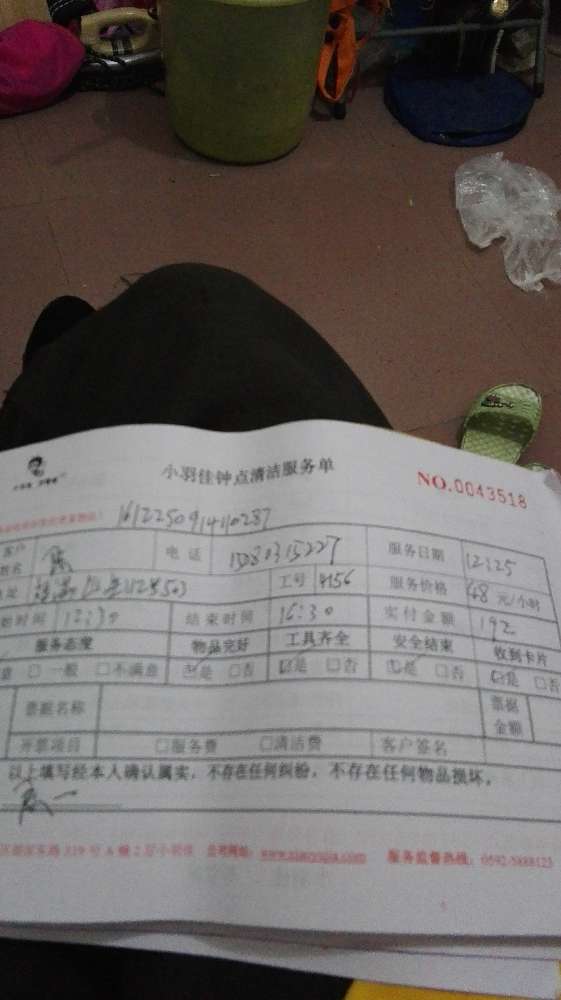 小羽佳钟点清洁服务单
NO.0043518
161225091410287
客户姓名 电话 15280315227 服务日期 12.25
工号 4156 服务价格 48元/小时
始时间 12:30 结束时间 16:30 实付金额 192
服务态度 物品完好 工具齐全 安全结束 收到卡片
意 □一般 □不满意 ☑是 □否 ☑是 □否 ☑是 □否 ☑是 □否
票据名称 票据金额
开票项目 □服务费 □清洁费 客户签名
以上填写经本人确认属实，不存在任何纠纷，不存在任何物品损坏。
319号A幢2 小羽佳 公司网址： 服务监督热线：0592-5888123